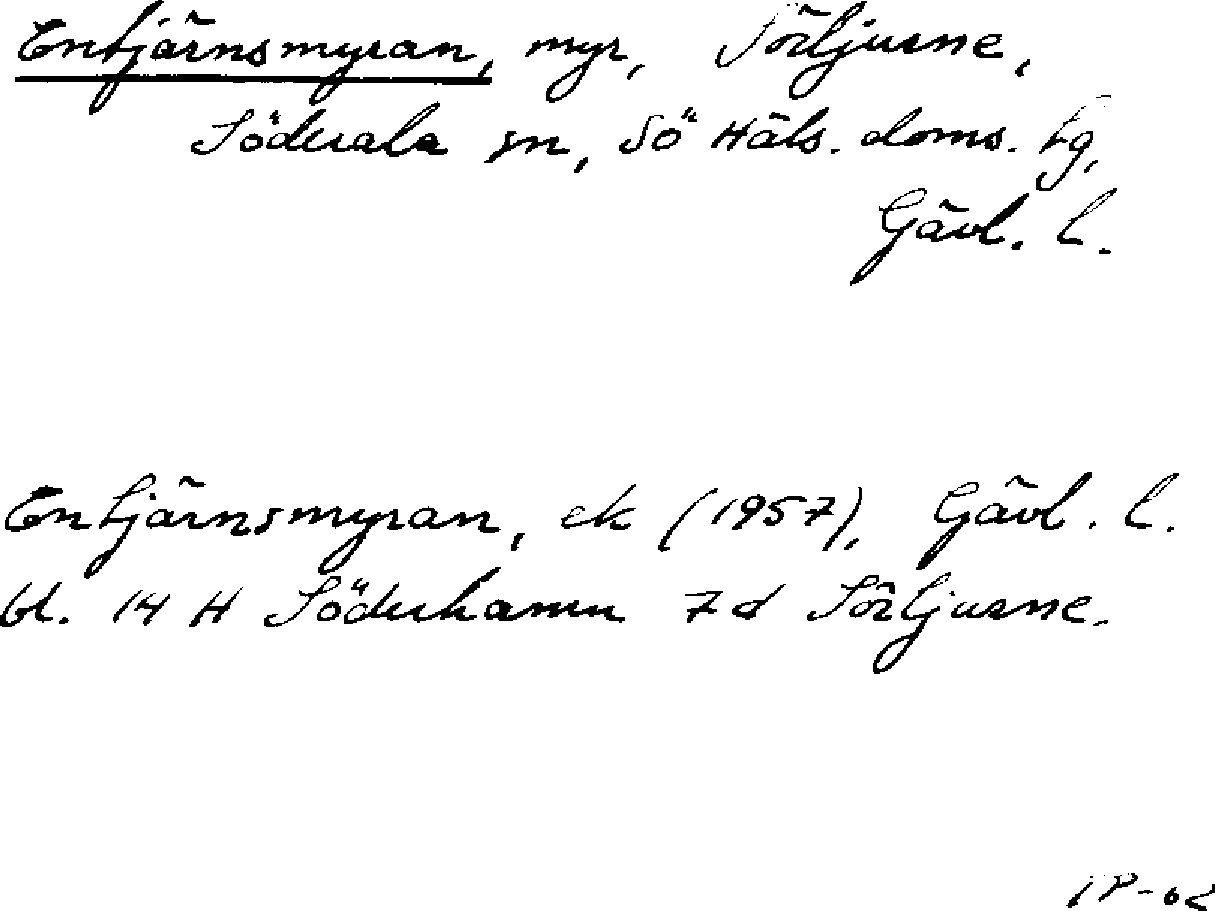 Entjärnsmyran, myr, Sörljusne,
Söderala sn, Sö Häls. doms. tg,
Gävl. l.
Entjärnsmyran, ek (1957), Gävl. l.
bl. 14 H Söderhamn 7d Sörljusne.
IP-62